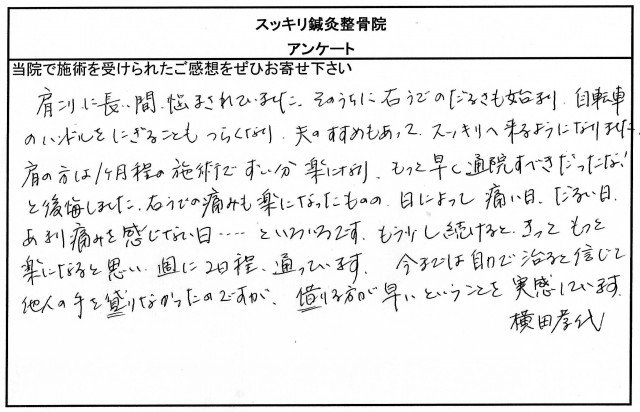 スッキリ鍼灸整骨院
アンケート
当院で施術を受けられたご感想をぜひお寄せ下さい
肩こりに長い間、悩まされていました。そのうちに右うでのだるさも始まり、自転車
のハンドルをにぎることもつらくなり、夫のすすめもあって、スッキリへ来るようになりました。
肩の方は1ヶ月程の施術でずい分楽になり、もっと早く通院すべきだったな!
と後悔しました。右うでの痛みも楽になったものの、日によって痛い日、だるい日、
あまり痛みを感じない日……といろいろです。もう少し続けると、きっともっと
楽になると思い、週に2日程、通っています。今までは自力で治ると信じて
他人の手を貸りなかったのですが、借りる方が早いということを実感しています。
横田孝代